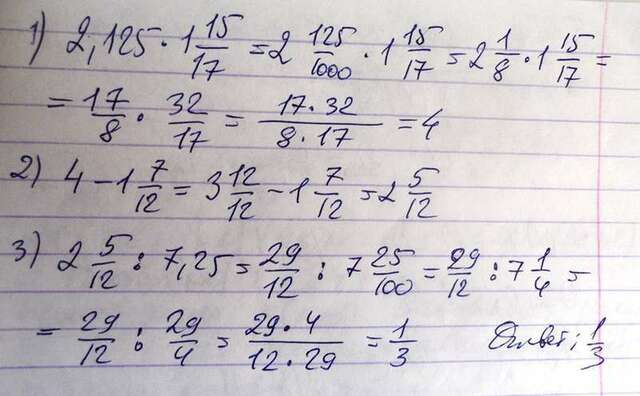 1) 2,125 · 1 15/17 = 2 125/1000 · 1 15/17 = 2 1/8 · 1 15/17 =
= 17/8 · 32/17 = 17·32/8·17 = 4
2) 4 - 1 7/12 = 3 12/12 - 1 7/12 = 2 5/12
3) 2 5/12 : 7,25 = 29/12 : 7 25/100 = 29/12 : 7 1/4 =
= 29/12 : 29/4 = 29·4/12·29 = 1/3 Ответ: 1/3